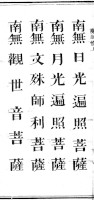 南無日光遍照菩薩
南無月光遍照菩薩
南無文殊師利菩薩
南無觀世音菩薩